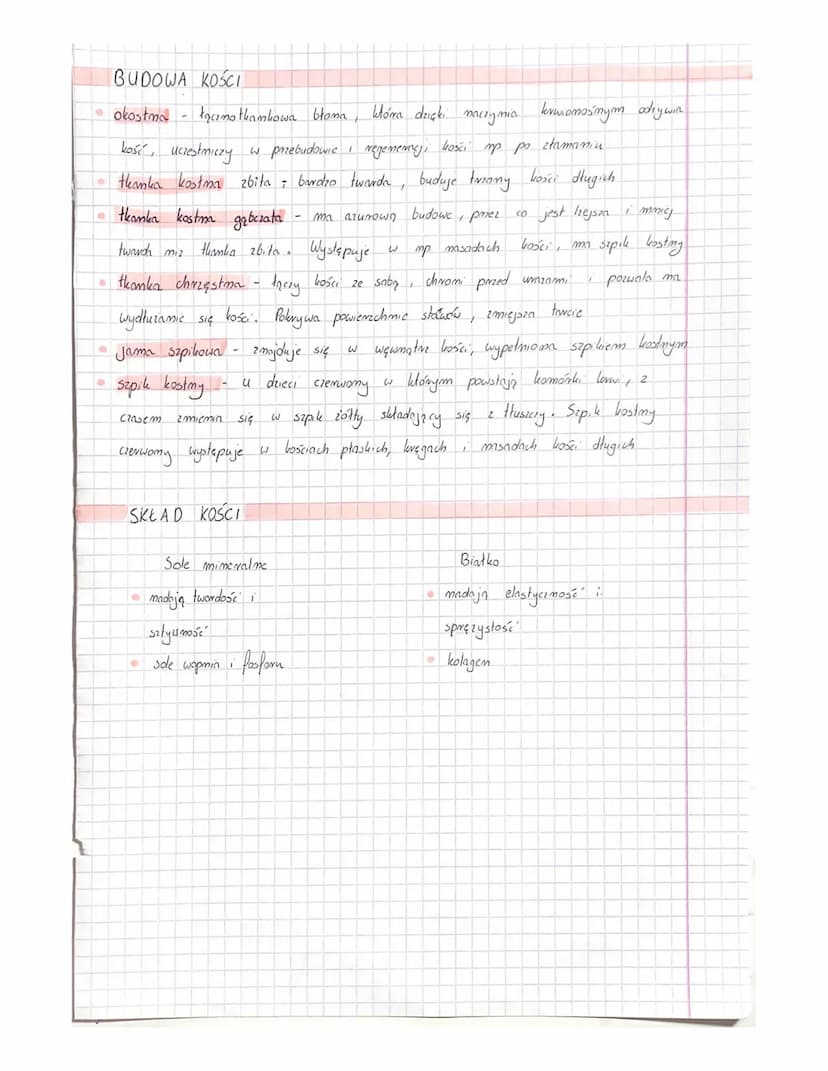 BUDOWA KOŚCI
okostna - łącznotkankowa błona, która dzięki naczynia krwionośnym odżywia
kość, uczestniczy w przebudowie i regeneracji kości np po złamaniu
tkanka kostna zbita - bardzo twarda, buduje trzony kości długich
tkanka kostna gąbczata - ma ażurową budowę, przez co jest lżejsza i mniej
twarda niż tkanka zbita. Występuje w np nasadach kości, ma szpik kostny
tkanka chrzęstna - łączy kości ze sobą, chroni przed urazami i pozwala na
wydłużanie się kości. Pokrywa powierzchnie stawów, zmiejsza tarcie
jama szpikowa - znajduje się w wewnątrz kości, wypełniona szpikiem kostnym
szpik kostny - u dzieci czerwony w którym powstają komórki krwi, z
czasem zmienia się w szpik żółty składający się z tłuszczy. Szpik kostny
czerwony występuje w kościach płaskich, kręgach i nasadach kości długich
SKŁAD KOŚCI
Sole mineralne
nadają twardość i
sztywność
sole wapnia i fosforu
Białko
nadają elastyczność i
sprężystość
kolagen